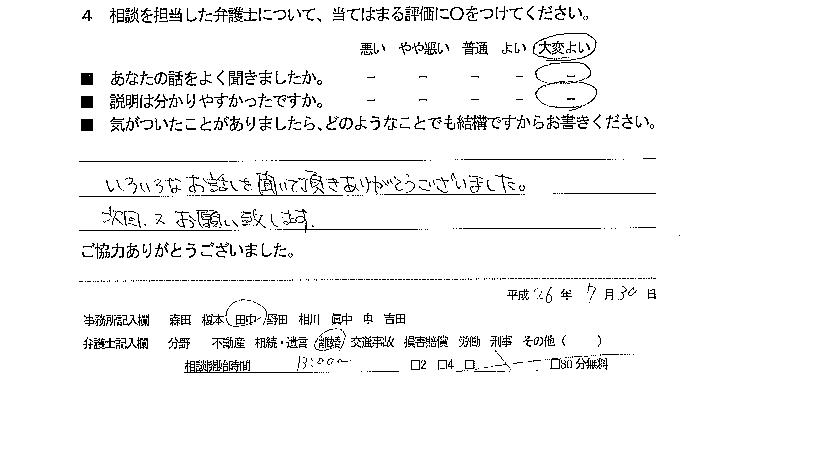 4 相談を担当した弁護士について、当てはまる評価に〇をつけてください。
悪い やや悪い 普通 よい 大変よい
■ あなたの話をよく聞きましたか。 － － － － －
■ 説明は分かりやすかったですか。 － － － － －
■ 気がついたことがありましたら、どのようなことでも結構ですからお書きください。
いろいろなお話しを聞いて頂きありがとうございました。
次回、又お願い致します。
ご協力ありがとうございました。
平成 26 年 7 月 30 日
事務所記入欄 森田 榎本 田中 野田 相川 眞中 吉田
弁護士記入欄 分野 不動産 相続・遺言 離婚 交通事故 損害賠償 労働 刑事 その他（ ）
相談開始時間 13:00～ □2 □4 □ □30分無料